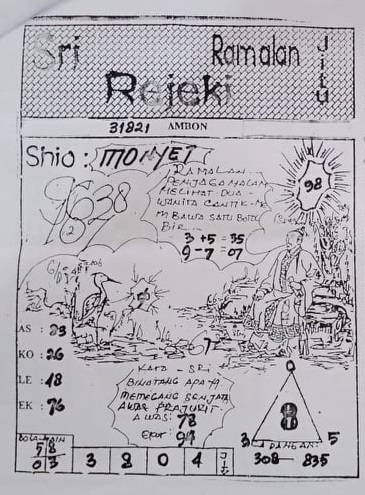 Sri
Ramalan
Jitu
Rejeki
31821 AMBON
Shio: MONYET
RAMALAN
PENJAGA MALAM
MELIHAT DUA
WANITA CANTIK
BAWA SATU BOTOL
BIR
3+5=35
9-7=07
98
9638
167
2
67
AS : 23
KO : 26
LE : 18
EK : 76
KATA - SRI
BINATANG APA YG
MEMEGANG SENJATA
AWAS PRAJURIT
AWAS: 78
EKOR: 97
8
3
5
CADANGAN
308 — 835
BOLA MAIN
58
03
3 8 0 4
JITU